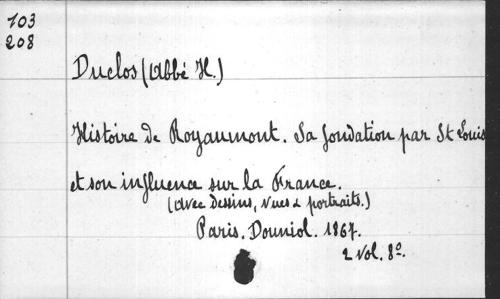 103
208
Duclos (Abbé H.)
Histoire de Royaumont. Sa fondation par St Louis
et son influence sur la France.
(avec Dessins, Vues & portraits.)
Paris. Douniol. 1867.
2 Vol. 8º.